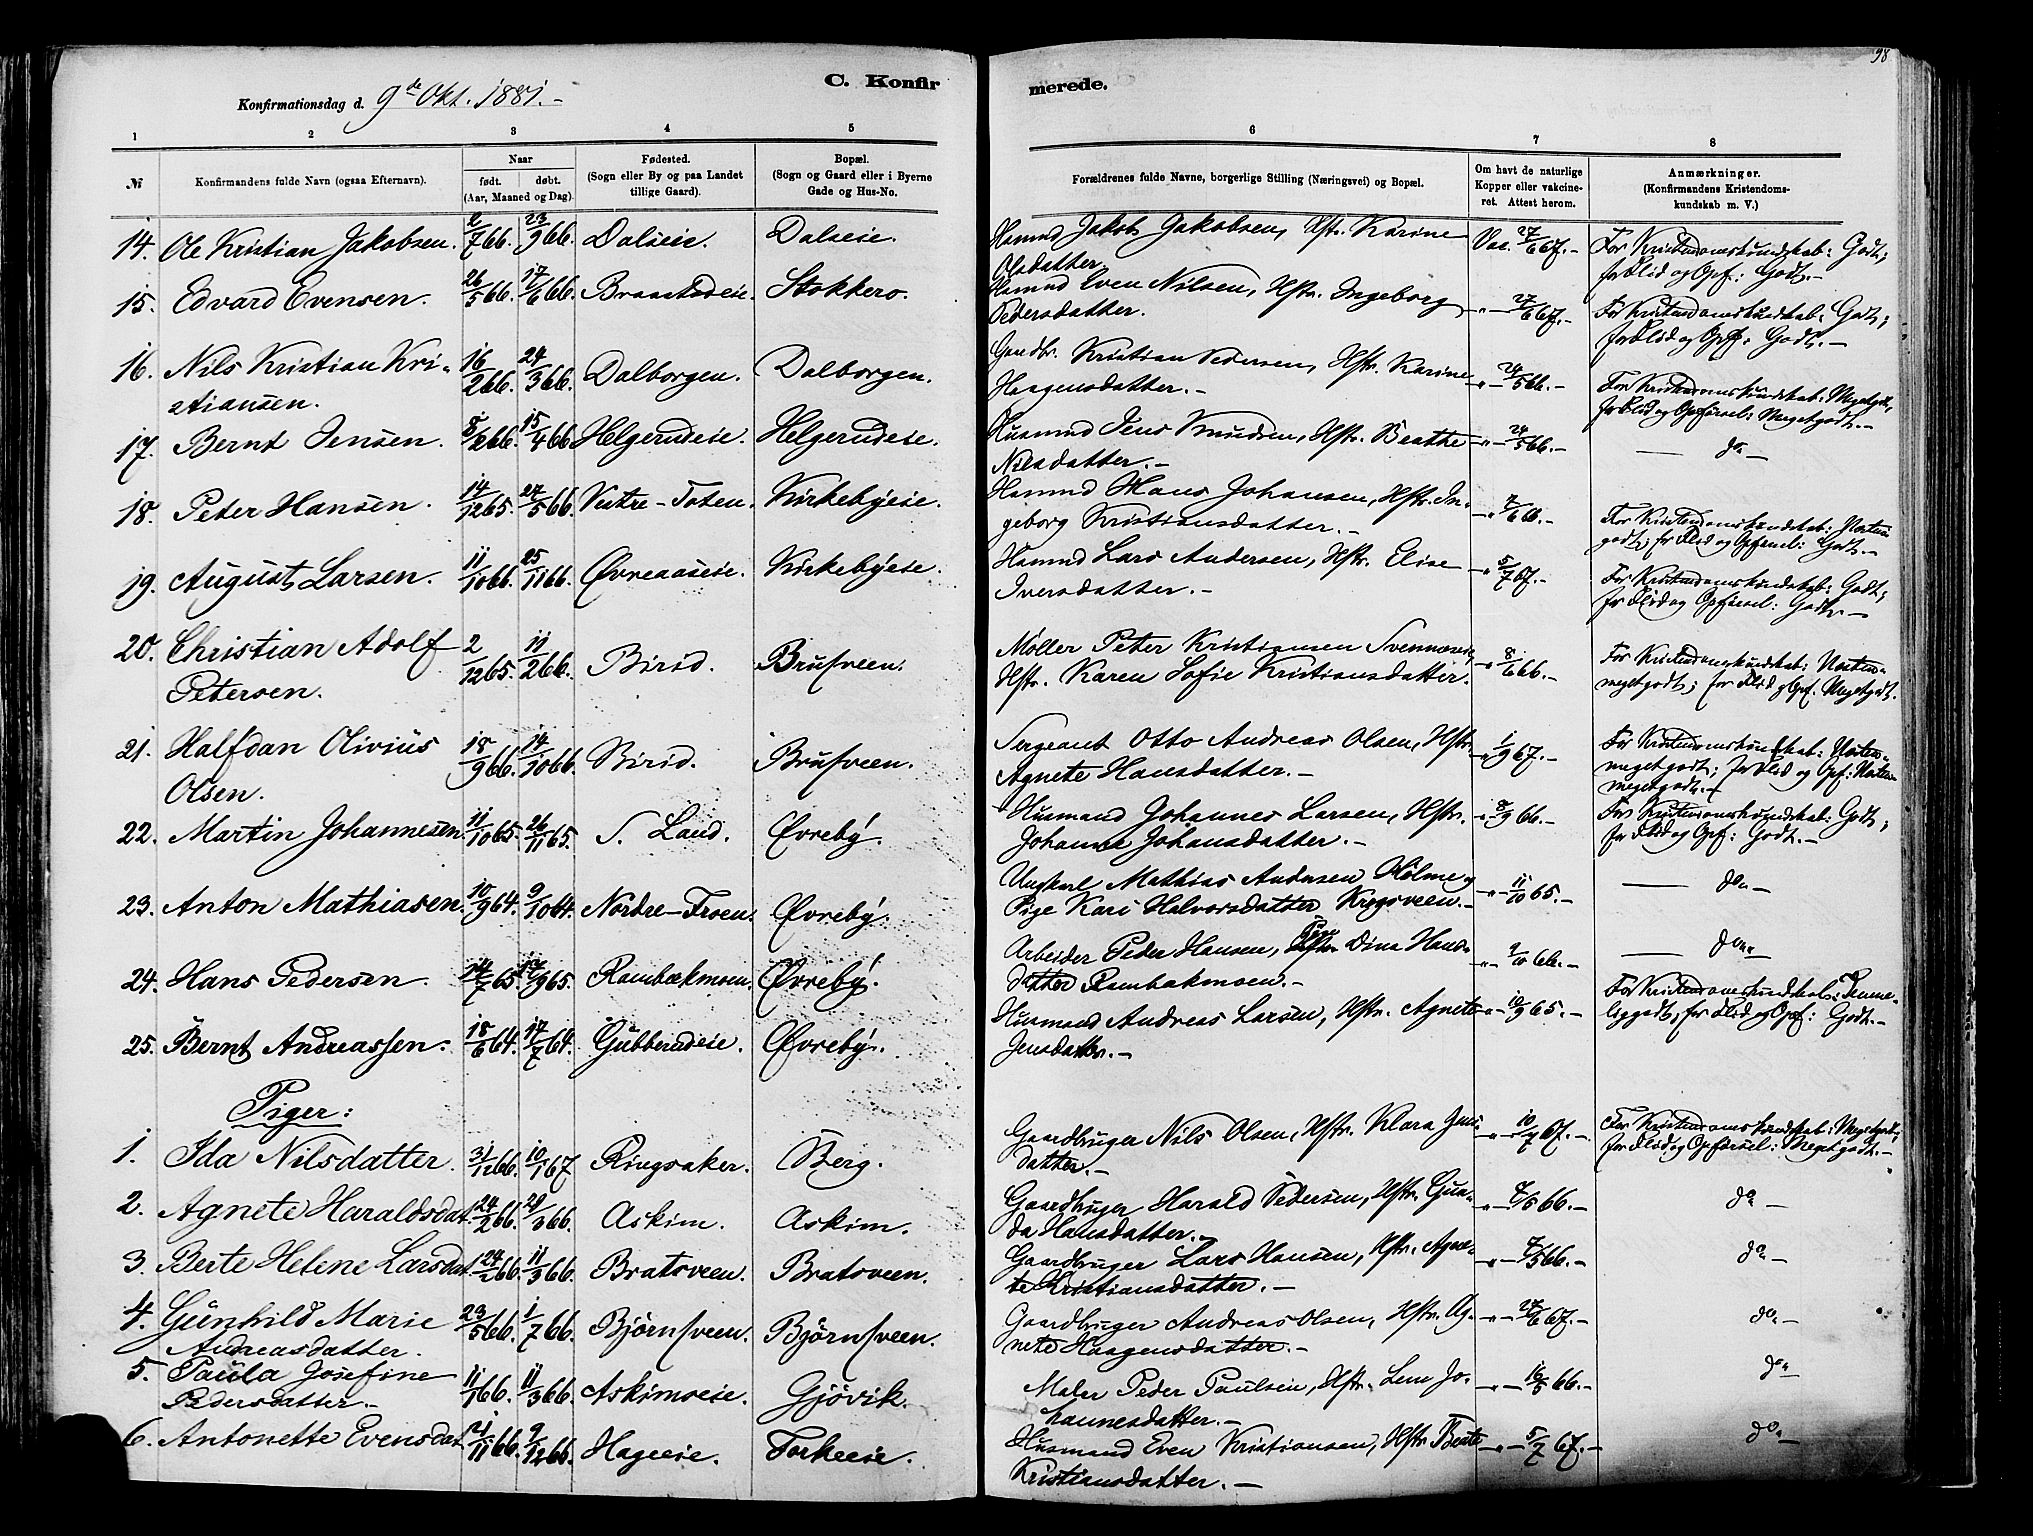 98
C. Konfirmerede.
Konfirmationsdag d. 9de Okt. 1881.-
1 2 3 4 5 6 7 8
№
Konfirmandens fulde Navn (ogsaa Efternavn).
Naar
født. døbt.
(Aar, Maaned og Dag).
Fødested.
(Sogn eller By og paa Landet
tillige Gaard).
Bopæl.
(Sogn og Gaard eller i Byerne
Gade og Hus-No.
Forældrenes fulde Navne, borgerlige Stilling (Næringsvei) og Bopæl.
Om havt de naturlige
Kopper eller vakcine-
ret. Attest herom.
Anmærkninger.
(Konfirmandens Kristendoms-
kundskab m. V.)
14. Ole Kristian Jakobsen. 2/7 66. 23/9 66. Dalseie. Dalseie. Husmd Jakob Jakobsen, Hstr. Karine Vac. 27/6 67.- For Kristendomskundskab: Godt;
Olsdatter. for Flid og Opf: Godt.-
15. Edvard Evensen. 26/5 66. 17/6 66. Braastadeie. Stokkero. Husmd Even Nilsen, Hstr. Ingeborg -"- 27/6 67.- For Kristendomskundskab: Godt;
Pedersdatter. for Flid og Opf: Godt.-
16. Nils Kristian Kri- 16/2 66. 24/3 66. Dalborgen. Dalborgen. Gaardbr. Kristian Pedersen, Hstr. Karine -"- 24/5 66.- For Kristendomskundskab: Megetgodt,
stiansen. Haagensdatter.- for Flid og Opførsel: Megetgodt.-
17. Bernt Jensen. 8/2 66. 15/4 66. Helgerudeie. Helgerudeie. Husmnd Jens Knudsen, Hstr. Beathe -"- 24/5 66.- do -
Nilsdatter.-
18. Peter Hansen. 14/12 65. 27/5 66. Vestre-Toten. Kirkebyeie. Husmnd Hans Johansen, Hstr. In- -"- 7/6 66.- For Kristendomskundskab: Næsten
geborg Kristiansdatter.- godt; for Flid og Opførsel: Godt.-
19. August Larsen. 11/10 66. 25/11 66. Øvreaaseie. Kirkebyeie. Husmnd Lars Andersen, Hstr. Elise -"- 5/7 67.- For Kristendomskundskab: Godt;
Iversdatter.- for Flid og Opførsel: Godt.-
20. Christian Adolf 2/12 65. 11/2 66. Birid. Brufveen. Møller Peter Kristiansen Svennæseie, -"- 8/6 66.- For Kristendomskundskab: Næsten-
Petersen. Hstr. Karen Sofie Kristiansdatter. megetgodt; for Flid og Opf. Megetgodt.
21. Halfdan Olivius 18/9 66. 14/10 66. Birid. Brufveen. Sergeant Otto Andreas Olsen, Hstr. -"- 1/9 67.- For Kristendomskundskab: Næsten-
Olsen. Agnete Hansdatter.- megetgodt; for Flid og Opf: Næsten
megetgodt.-
22. Martin Johannesen. 11/10 65. 26/11 65. S. Land. Øvreby. Husmand Johannes Larsen, Hstr. -"- 8/9 66.- For Kristendomskundskab: Godt;
Johanne Johansdatter.- for Flid og Opf: Godt.-
23. Anton Mathiasen. 10/9 64. 9/10 64. Nordre-Froen. Øvreby. Ungkarl Mathias Andersen Holme og -"- 11/10 65.- do -
Pige Kari Halvorsdatter Krogsveen.-
24. Hans Pedersen. 14/7 65. 17/9 65. Rambækmoen. Øvreby. Arbeider Peder Hansen, Pige Dina Hans- -"- 9/10 66.- do -
datter Rambækmoen.-
25. Bernt Andreassen. 18/6 64. 17/7 64. Gubberudeie. Øvreby. Husmand Andreas Larsen, Hstr. Agnete -"- 10/9 65.- For Kristendomskundskab: Temme-
Jensdatter.- liggodt, for Flid og Opf: Godt.-
Piger:
1. Ida Nilsdatter. 31/12 66. 10/1 67 Ringsaker. Berg. Gaardbruger Nils Olsen, Hstr. Klara Jens- -"- 10/7 67.- For Kristendomskundskab: Megetgodt;
datter.- for Flid og Opførsel: Megetgodt.-
2. Agnete Haraldsdat. 24/2 66. 29/3 66. Askim. Askim. Gaardbruger Harald Pedersen, Hstr. Gun- -"- 4/5 66.- do -
da Hansdatter.-
3. Berte Helene Larsdat. 24/2 66. 11/3 66. Bratsveen. Bratsveen. Gaardbruger Lars Hansen, Hstr. Agne- -"- 4/5 66.- do -
te Kristiansdatter.-
4. Gunhild Marie 23/5 66. 1/7 66. Bjørnsveen. Bjørnsveen. Gaardbruger Andreas Olsen, Hstr. Ag- -"- 27/6 67.- do -
Andreasdatter. nete Haagensdatter.-
5. Paula Josefine 11/1 66. 11/3 66. Askimseie. Gjøvik. Maler Peder Paulsen, Hstr. Lem Jo- -"- 16/5 66.- do -
Pedersdatter.- hannesdatter.-
6. Antonette Evensdat. 21/11 66. 9/12 66. Hageeie. Torkeeie. Husmand Even Kristiansen, Hstr. Beate -"- 5/7 67.- do -
Kristiansdatter.-